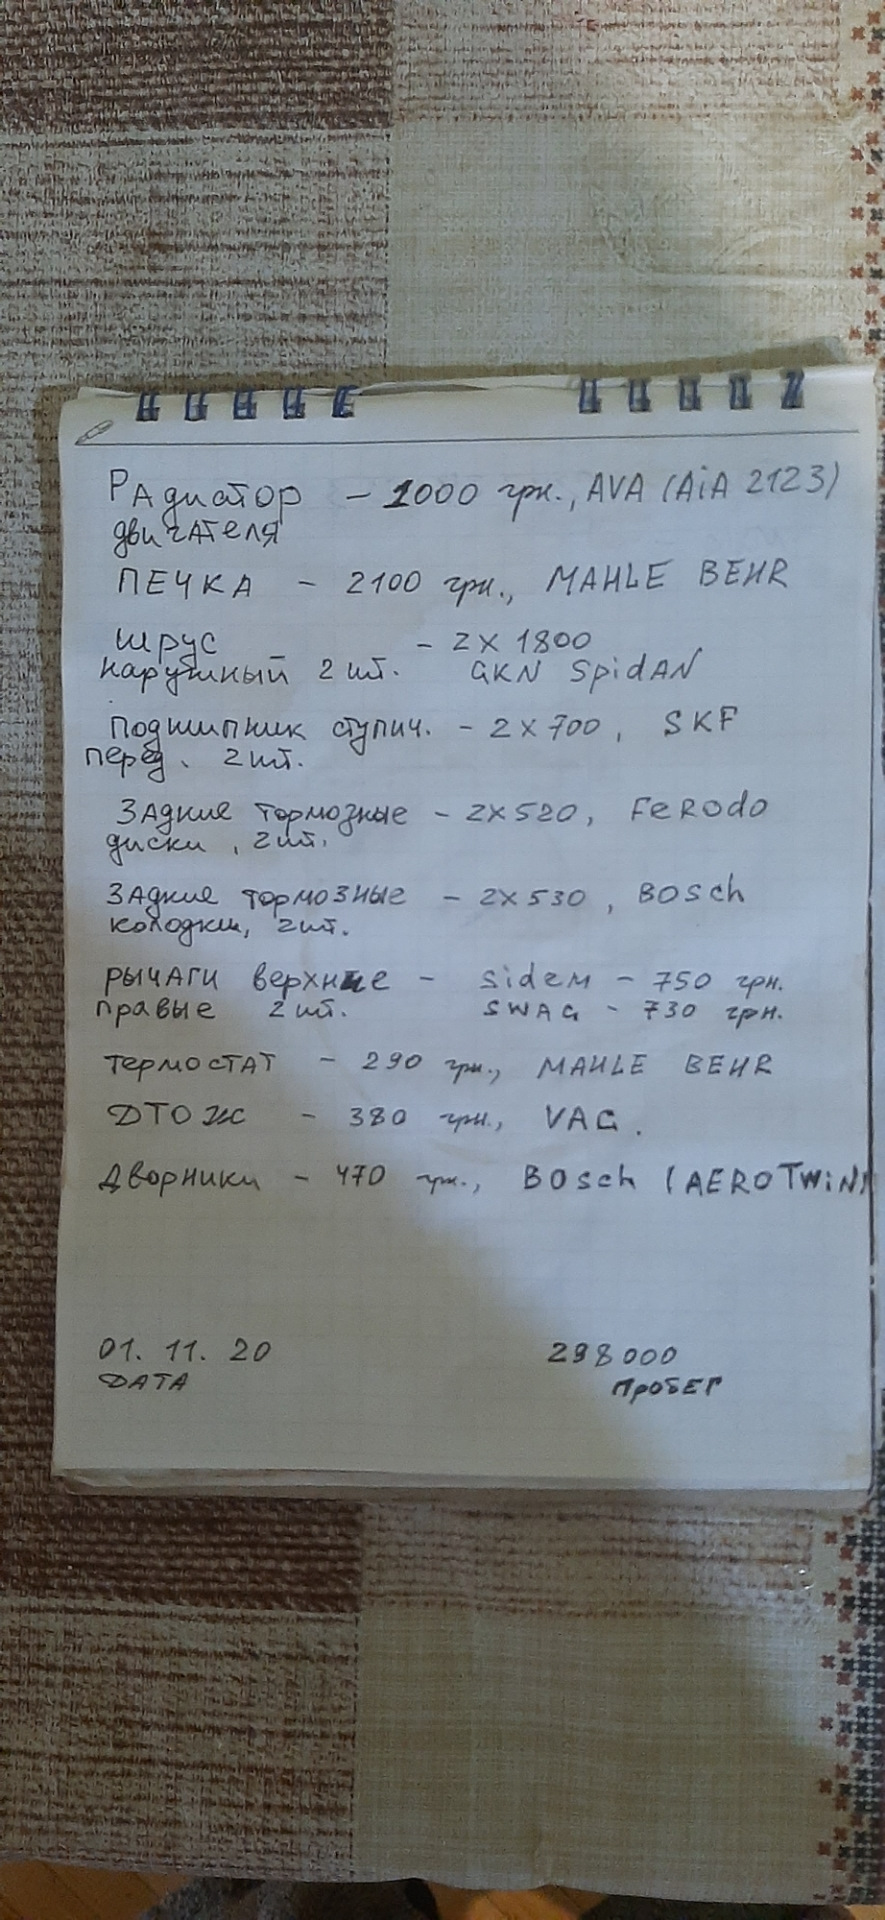 Радиатор - 1000 грн., AVA (AiA 2123)
двигателя
ПЕЧКА - 2100 грн., MAHLE BEHR
шрус - 2 х 1800
наружный 2 шт. GKN SpidAN
подшипник ступич. - 2 х 700, SKF
перед. 2 шт.
Задние тормозные - 2х520, FeRodo
диски, 2 шт.
Задние тормозные - 2х530, BOSch
колодки, 2 шт.
рычаги верхние - Sidem - 750 грн.
правые 2 шт. SWAG - 730 грн.
термостат - 290 грн., MAHLE BEHR
ДТОЖ - 380 грн., VAG.
Дворники - 470 грн., BOSch (AEROTWiN)
01. 11. 20 298000
ДАТА ПРОБЕГ